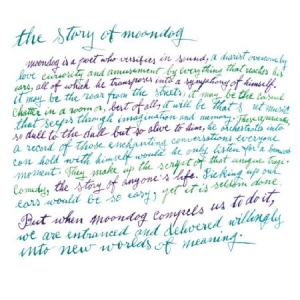 the story of moondog
moondog is a poet who versifies in sound, a diarist overcome by
love curiosity and amusement by everything that reaches his
ears, all of which he transposes into a symphony of himself.
it may be the roar from the streets, it may be the casual
chatter in a room or, best of all, it will be that music
that seeps through imagination and memory. These
so dull to the dull but so alive to him, he orchestrates into
a record of those enchanting conversations everyone
can hold with himself would he only listen for a
moment. They make up the script of that unique tragi-
comedy, the story of anyone's life. Picking up our
ears would be so easy, yet it is seldom done.
But when moondog compels us to do it,
we are entranced and delivered willingly
into new worlds of meaning.